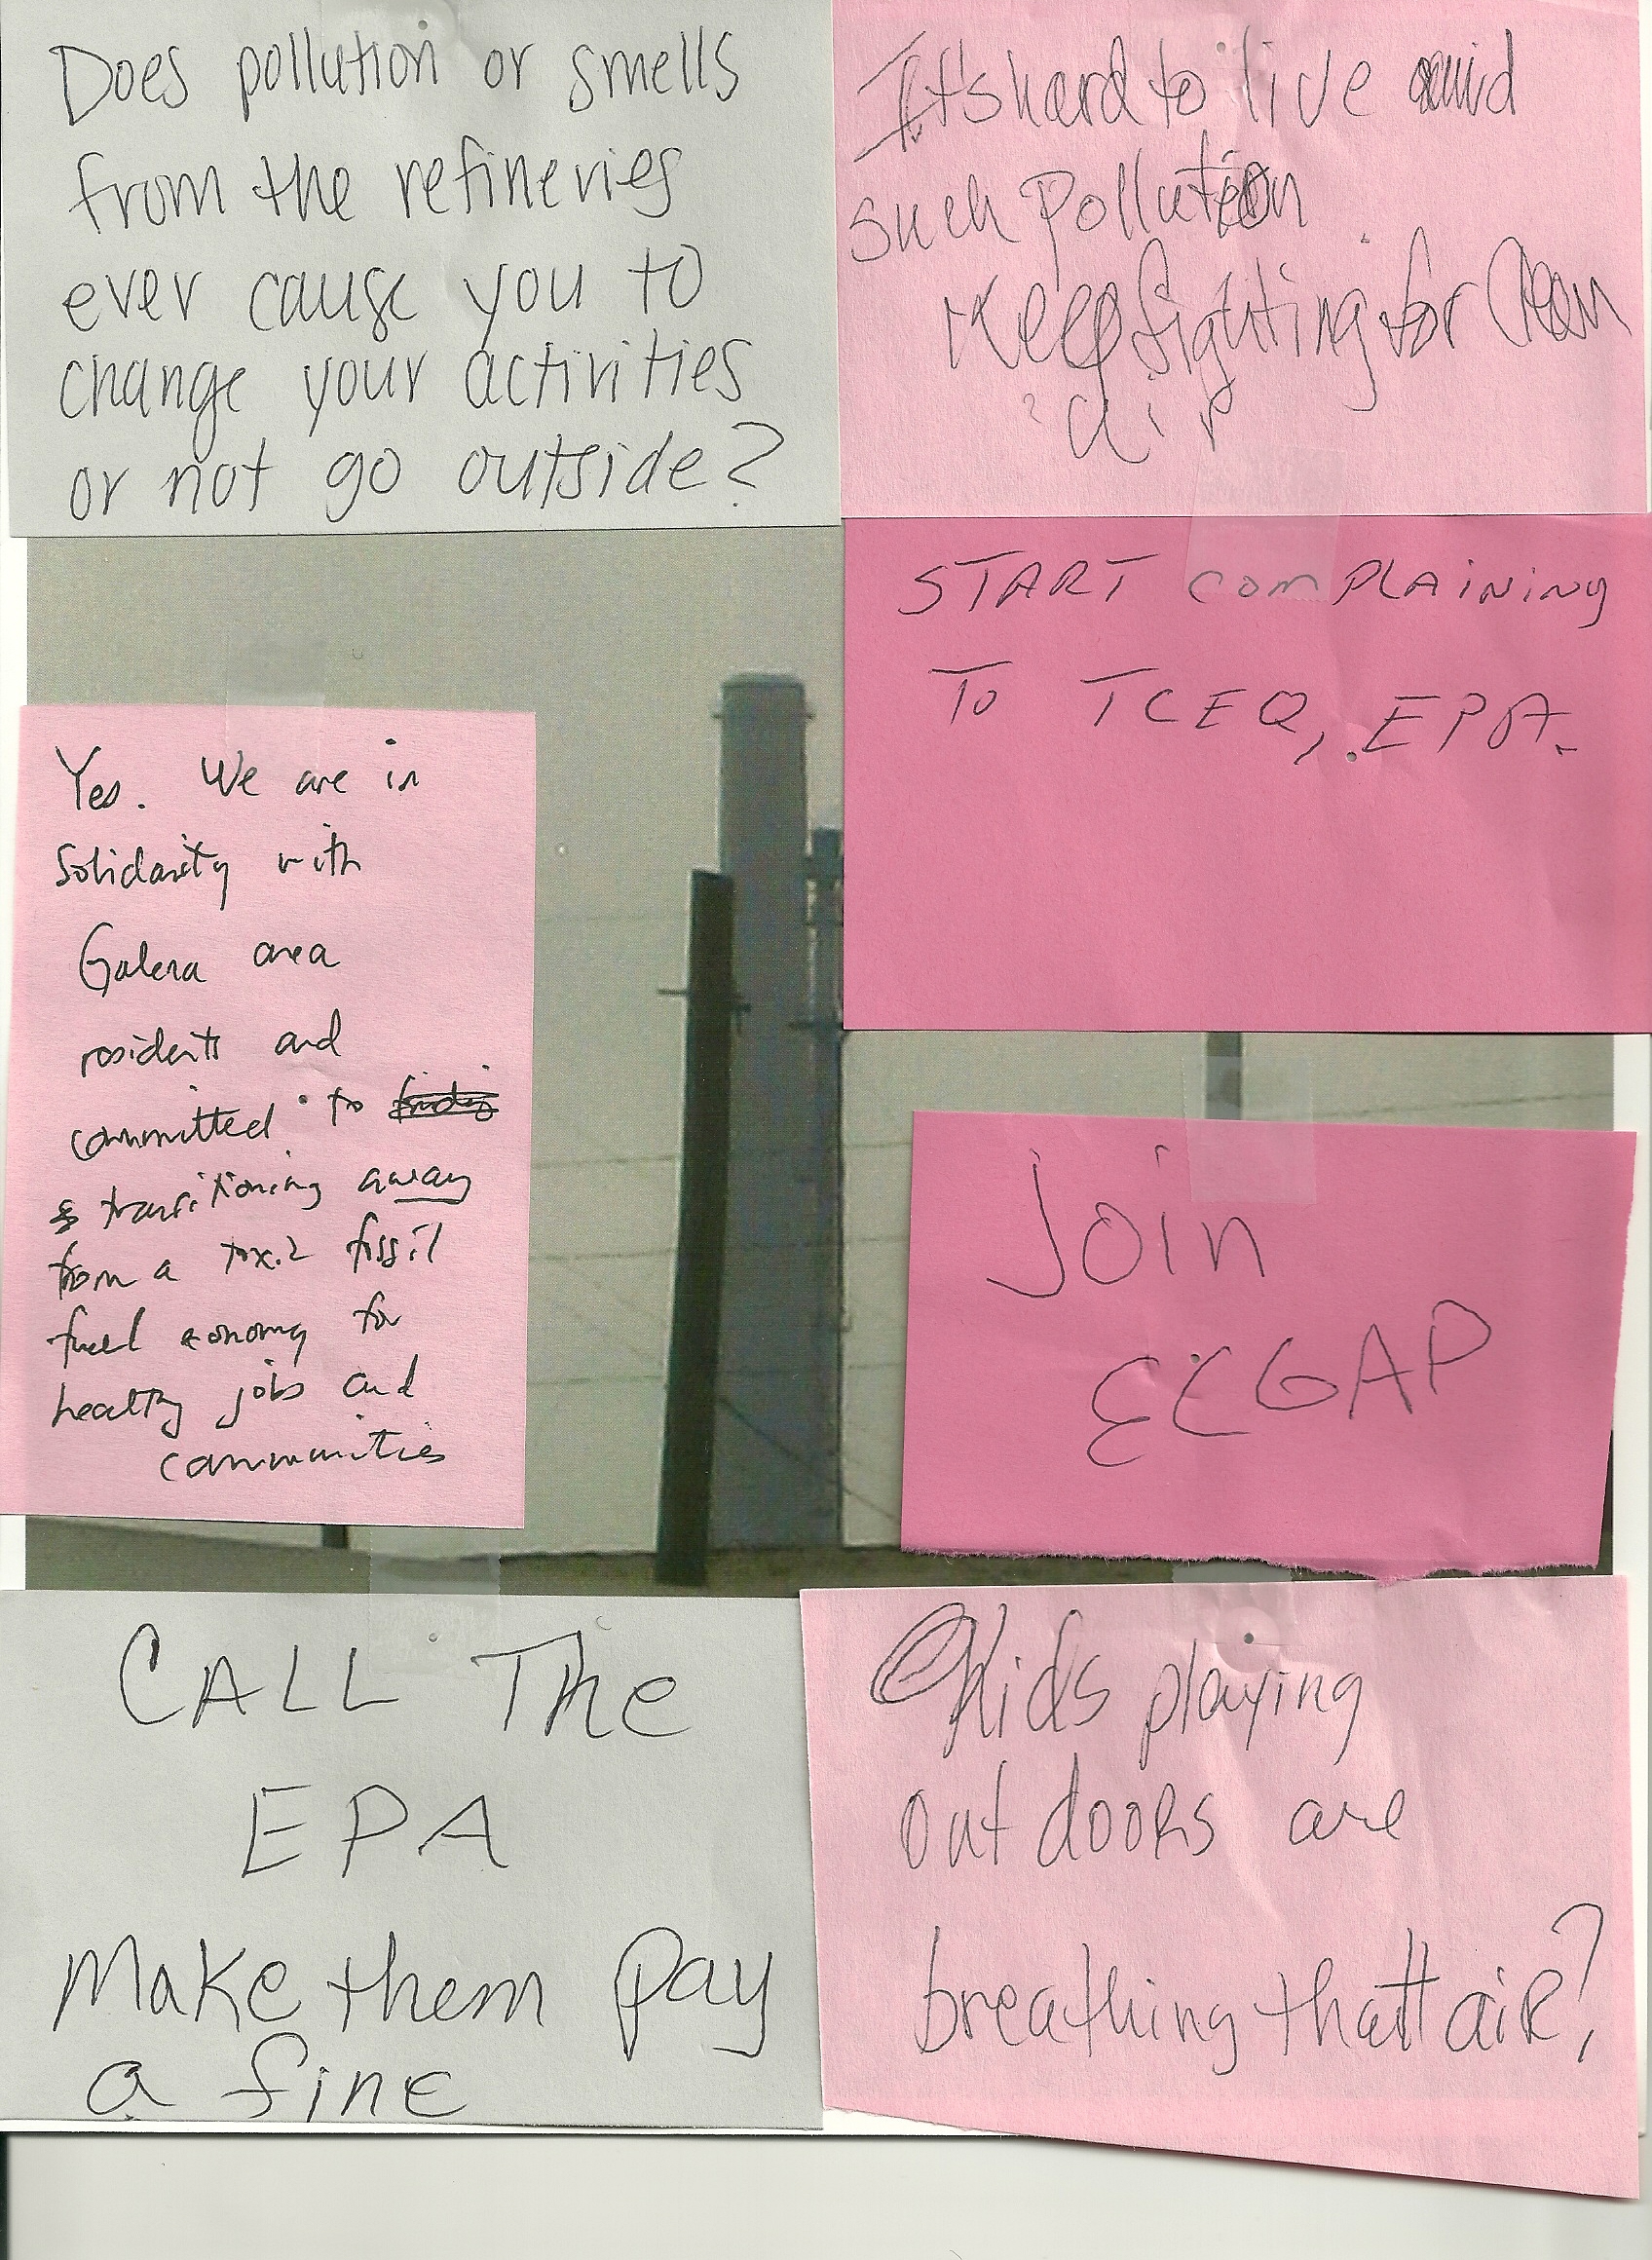 Does pollution or smells
from the refineries
ever cause you to
change your activities
or not go outside?
It's hard to live amid
such Pollution
Keep fighting for Clean
air
START complaining
To TCEQ, EPA.
Yes. We are in
Solidarity with
Galena area
residents and
committed to
transitioning away
from a toxic fossil
fuel economy for
healthy jobs and
communities
Join
ECGAP
CALL The
EPA
Make them Pay
a fine
Kids playing
outdooRs are
breathing that aiR?